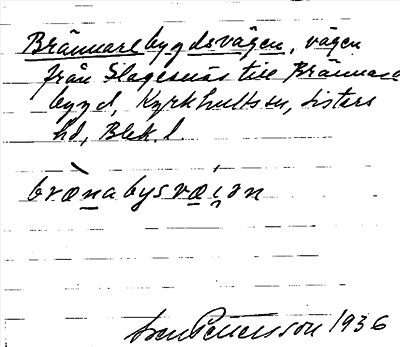 Brännarebygdsvägen, vägen
från Slagesnäs till Brännare
bygd, Kyrkhults sn, Listers
hd, Blek. l.
bræ̀nabysvæiən
Sven Pettersson 1936